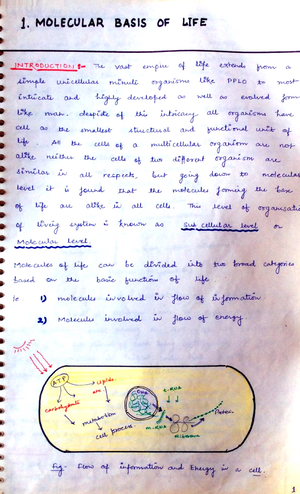 1. MOLECULAR BASIS OF LIFE
INTRODUCTION :- The vast empire of life extends from a
simple unicellular minute organisms like PPLO to most
intricate and highly developed as well as evolved form
like man. despite of this intricay all organisms have
cell as the smallest structural and functional unit of
life. All the cells of a multicellular organism are not
alike neither the cells of two different organism are
similar in all respects, but going down to molecular
level it is found that the molecules forming the base
of life are alike in all cells. This level of organisatio
of living system is known as Sub cellular level or
Molecular level.
Molecules of life can be divided into two broad categories
based on the basic function of life
1) molecules involved in flow of information
2) Molecules involved in flow of energy.
ATP
Lipids
etc
carbohydrate
metabolism
cell process.
DNA
t-RNA
m-RNA
Ribosome
Protein
Fig- Flow of information and Energy in a cell.
1